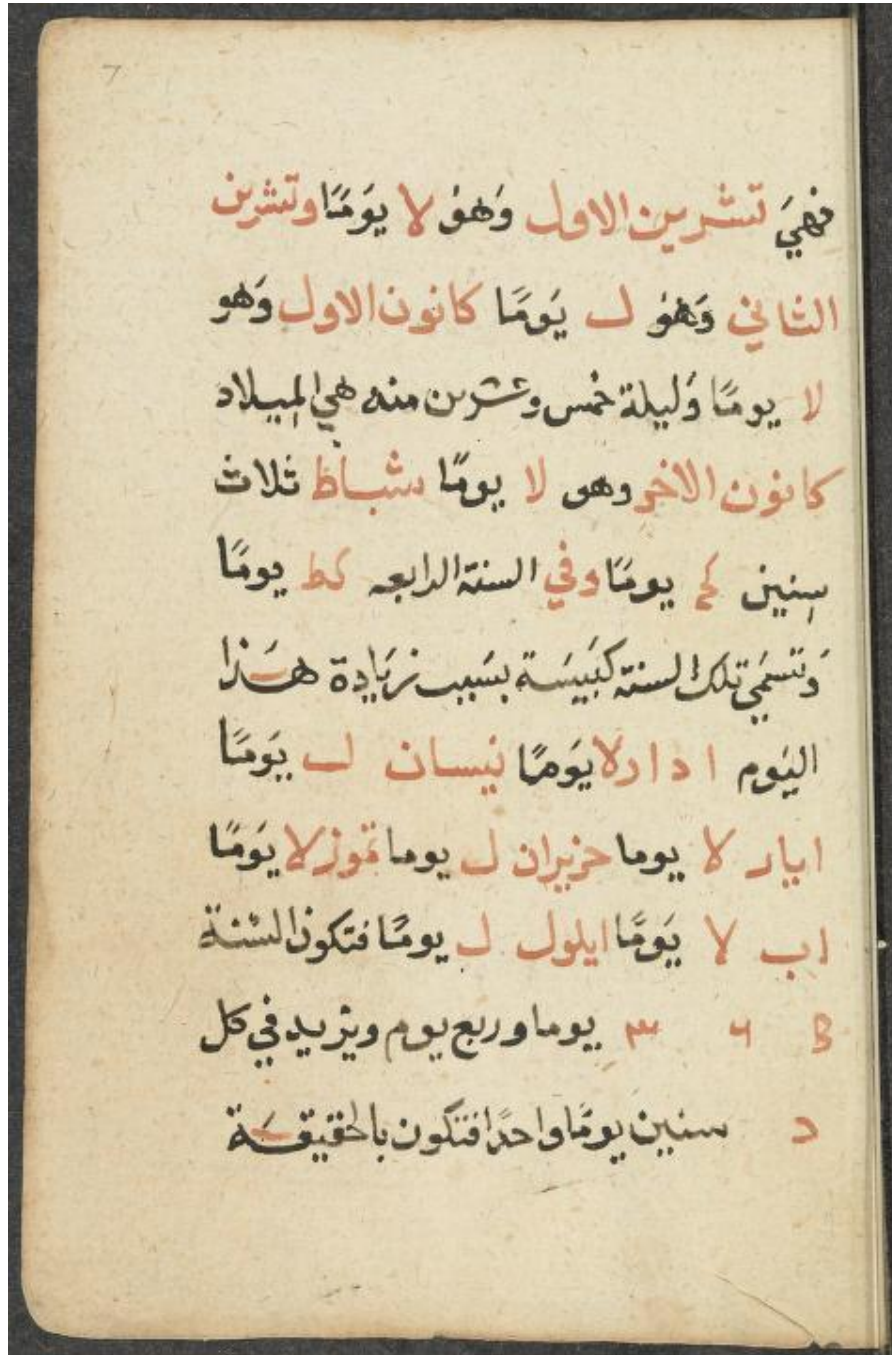 7
فهيَ تشرين الاول وَهوُ لا يوَمًا وتشرين
الثاني وَهوُ ل يَومًا كانون الاول وَهو
لا يومًا وَليلة خمس وعشرين منه هي الميلاد
كانون الاخر وهو لا يومًا شباط ثلاث
سِنين كح يومًا وفي السنة الرابعه كط يومًا
وَتسَمي تلك السنة كَبَيسَة بسَبب زيَادة هَذا
اليَوم ادار لا يَومًا نيسان ل يَومًا
ايار لا يوما حزيران ل يوما تموز لا يَومًا
اب لا يَومًا ايلول ل يومًا فتكون السَنة
٣ ٦ B يوما وربع يوم ويزيد في كل
د سنين يومًا واحدًا فتكون بالحقيقَة